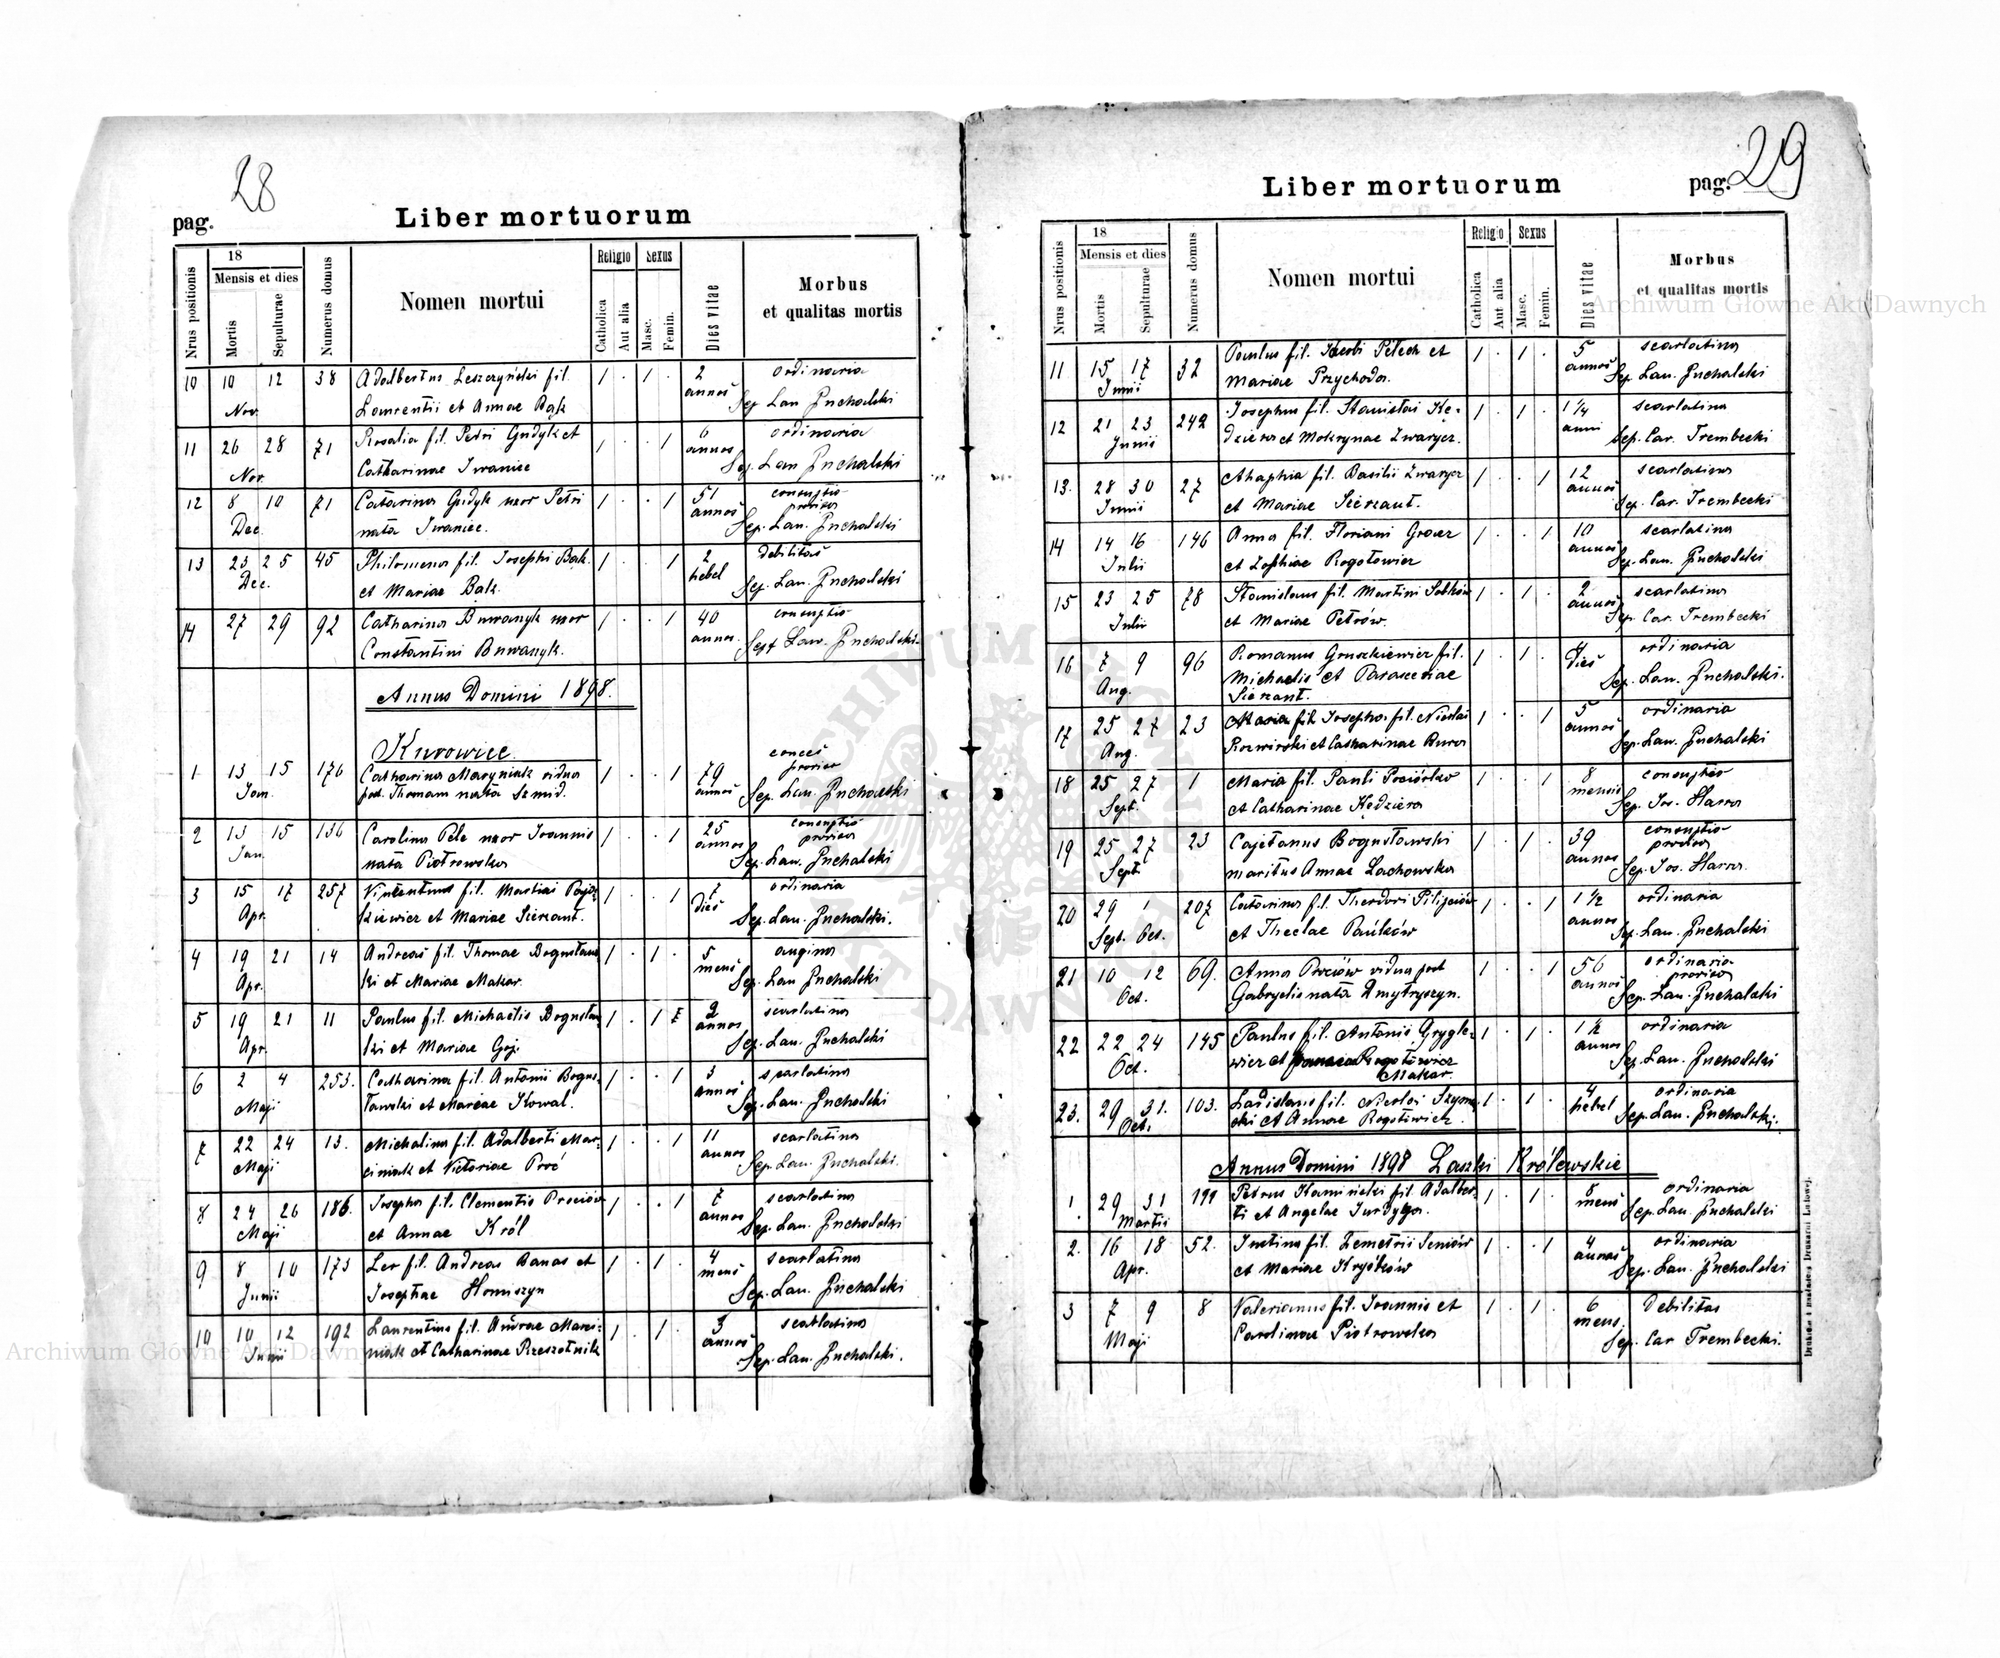 28
pag.
Liber mortuorum
Nrus positionis
18
Mensis et dies
Mortis
Sepulturae
Numerus domus
Nomen mortui
Religio
Catholica
Aut alia
Sexus
Masc.
Femin.
Dies vitae
Morbus
et qualitas mortis
10 10 12 38 Adalbertus Leszczyński fil. 1 . 1 . 2 ordinaria
Nov. Laurentii et Annae Bąk annos Sep. Lau. Puchalski
11 26 28 71 Rosalia fil. Petri Gudyk et 1 . . 1 6 ordinaria
Nov. Catharinae Iwaniec annos Sep. Lau. Puchalski
12 8 10 71 Catarina Gudyk uxor Petri 1 . . 1 51 consuptio
Dec. nata Iwaniec. annos provisa
Sep. Lau. Puchalski
13 23 25 45 Philomena fil. Josephi Bąk 1 . . 1 2 debilitas
Dec. et Mariae Bąk. hebd Sep. Lau. Puchalski
14 27 29 92 Catharina Buwanyk uxor 1 . . 1 40 consuptio
Constantini Buwanyk. annos. Sept Law. Puchalski.
Annus Domini 1898.
Kurowice.
1 13 15 176 Catharina Maryniak vidua 1 . . 1 79 provisa
Jan. post. Thomam nata Szmid. annos Sep. Lau. Puchalski
2 13 15 136 Carolina Pele uxor Joannis 1 . . 1 25 consuptio
Jan. nata Piotrowska annos provisa
Sep. Lau. Puchalski
3 15 17 257 fil. 1 . . 1 7 ordinaria
Apr. et Mariae Sierzant. dies Sep. Lau. Puchalski.
4 19 21 14 Andreas fil. Thomae Bogusławs 1 . 1 . 5 angina
Apr. ki et Mariae Makar. mens Sep. Lau Puchalski
5 19 21 11 Paulus fil. Michaelis Bogusław 1 . 1 2 scarlatina
Apr. ki et Mariae annos Sep. Lau. Puchalski
6 2 4 253. Catharina fil. Antonii Bogus- 1 . . 1 3 scarlatina
Maji ławski et Mariae Kowal. annos Sep. Lau. Puchalski
7 22 24 13. Michalina fil. Adalberti Mar- 1 . . 1 11 scarlatina
Maji ciniak et Victoriae annos Sep. Lau. Puchalski.
8 24 26 186. Josepha fil. Clementis Prociów 1 . . 1 7 scarlatina
Maji et Annae Król annos Sep. Lau. Puchalski
9 8 10 173 Leo fil. Andreas Banas et 1 . 1 . 4 scarlatina
Junii Josephae Homiszyn mens Sep. Lau. Puchalski
10 10 12 192 Laurentius fil. Andreae Marci- 1 . 1 . 3 scarlatina
Junii niak et Catharinae Przeszotnik annos Sep. Lau. Puchalski.
Liber mortuorum
pag. 29
Nrus positionis
18
Mensis et dies
Mortis
Sepulturae
Numerus domus
Nomen mortui
Religio
Catholica
Aut alia
Sexus
Masc.
Femin.
Dies vitae
Morbus
et qualitas mortis
11 15 17 32 Paulus fil. Jacobi Pelech et 1 . 1 . 5 scarlatina
Junii Mariae Przychoda. annos Sep. Lau. Puchalski
12 21 23 242 Josephus fil. Stanislai Kę- 1 . 1 . 1 1/4 scarlatina
Junii dziera et Mokrynae Zwarycz. anni Sep. Car. Trembecki
13. 28 30 27 Ahaphia fil. Basilii Zwarycz 1 . . 1 12 scarlatina
Junii et Mariae Sierzant. annos Sep. Car. Trembecki
14 14 16 146 Anna fil. Floriani 1 . . 1 10 scarlatina
Julii et Zophiae Rogotowicz annos Sep. Lau. Puchalski
15 23 25 78 Stanislaus fil. Martini Sobków 1 . 1 . 2 scarlatina
Julii et Mariae Petrów. annos Sep. Car. Trembecki
16 7 9 96 Romanus Gruszkiewicz fil. 1 . 1 . dies ordinaria
Aug. Michaelis et Parascevae Sep. Lau. Puchalski.
Sierzant.
17 25 27 23 Josepha fil. Nicolai 1 . . 1 5 ordinaria
Aug. Rozwirski et Catharinae Burra annos Sep. Lau. Puchalski
18 25 27 1 Maria fil. Pauli 1 . . 1 8 consuptio
Sept. et Catharinae Kędziera mensis Sep. Jos. Harra
19 25 27 23 Cajetanus Bogusławski 1 . 1 . 39 consuptio
Sept. maritus Annae Lachowska annos provisa
Sep. Jos. Harra.
20 29 1 207 Catarina fil. Theodori Pilipców 1 . . 1 1 1/2 ordinaria
Sept. Oct. et Theclae Pańków annos Sep. Lau. Puchalski
21 10 12 69. Anna Prociów vidua post 1 . . 1 56 ordinaria
Oct. Gabryelis nata Dmytryszyn. annos provisa
Sep. Lau. Puchalski
22 22 24 145 Paulus fil. Antonii Grygle- 1 . 1 . 1 1/2 ordinaria
Oct. wicz et Rogotowicz annos Sep. Lau. Puchalski
Makar.
23. 29 31. 103. Ladislaus fil. Nicolai 1 . 1 . 4 ordinaria
Oct. ski et Annae Rogotowicz. hebd Sep. Lau. Puchalski.
Annus Domini 1898 Laszki Królewskie
1. 29 31 199 Petrus Kamiński fil. Adalber- 1 . 1 . 8 ordinaria
Martii ti et Angelae mens Sep. Lau. Puchalski
2. 16 18 52. Justina fil. Zemetrii Seniów 1 . . 1 4 ordinaria
Apr. et Mariae Kryśków annos Sep. Lau. Puchalski
3 7 9 8 Valerianus fil. Joannis et 1 . 1 . 6 debilitas
Maji Carolinae Piotrowska mens. Sep. Car Trembecki.
Drukiem i nakładem Drukarni Ludowej.
Archiwum Główne Akt Dawnych
Archiwum Główne Akt Dawnych